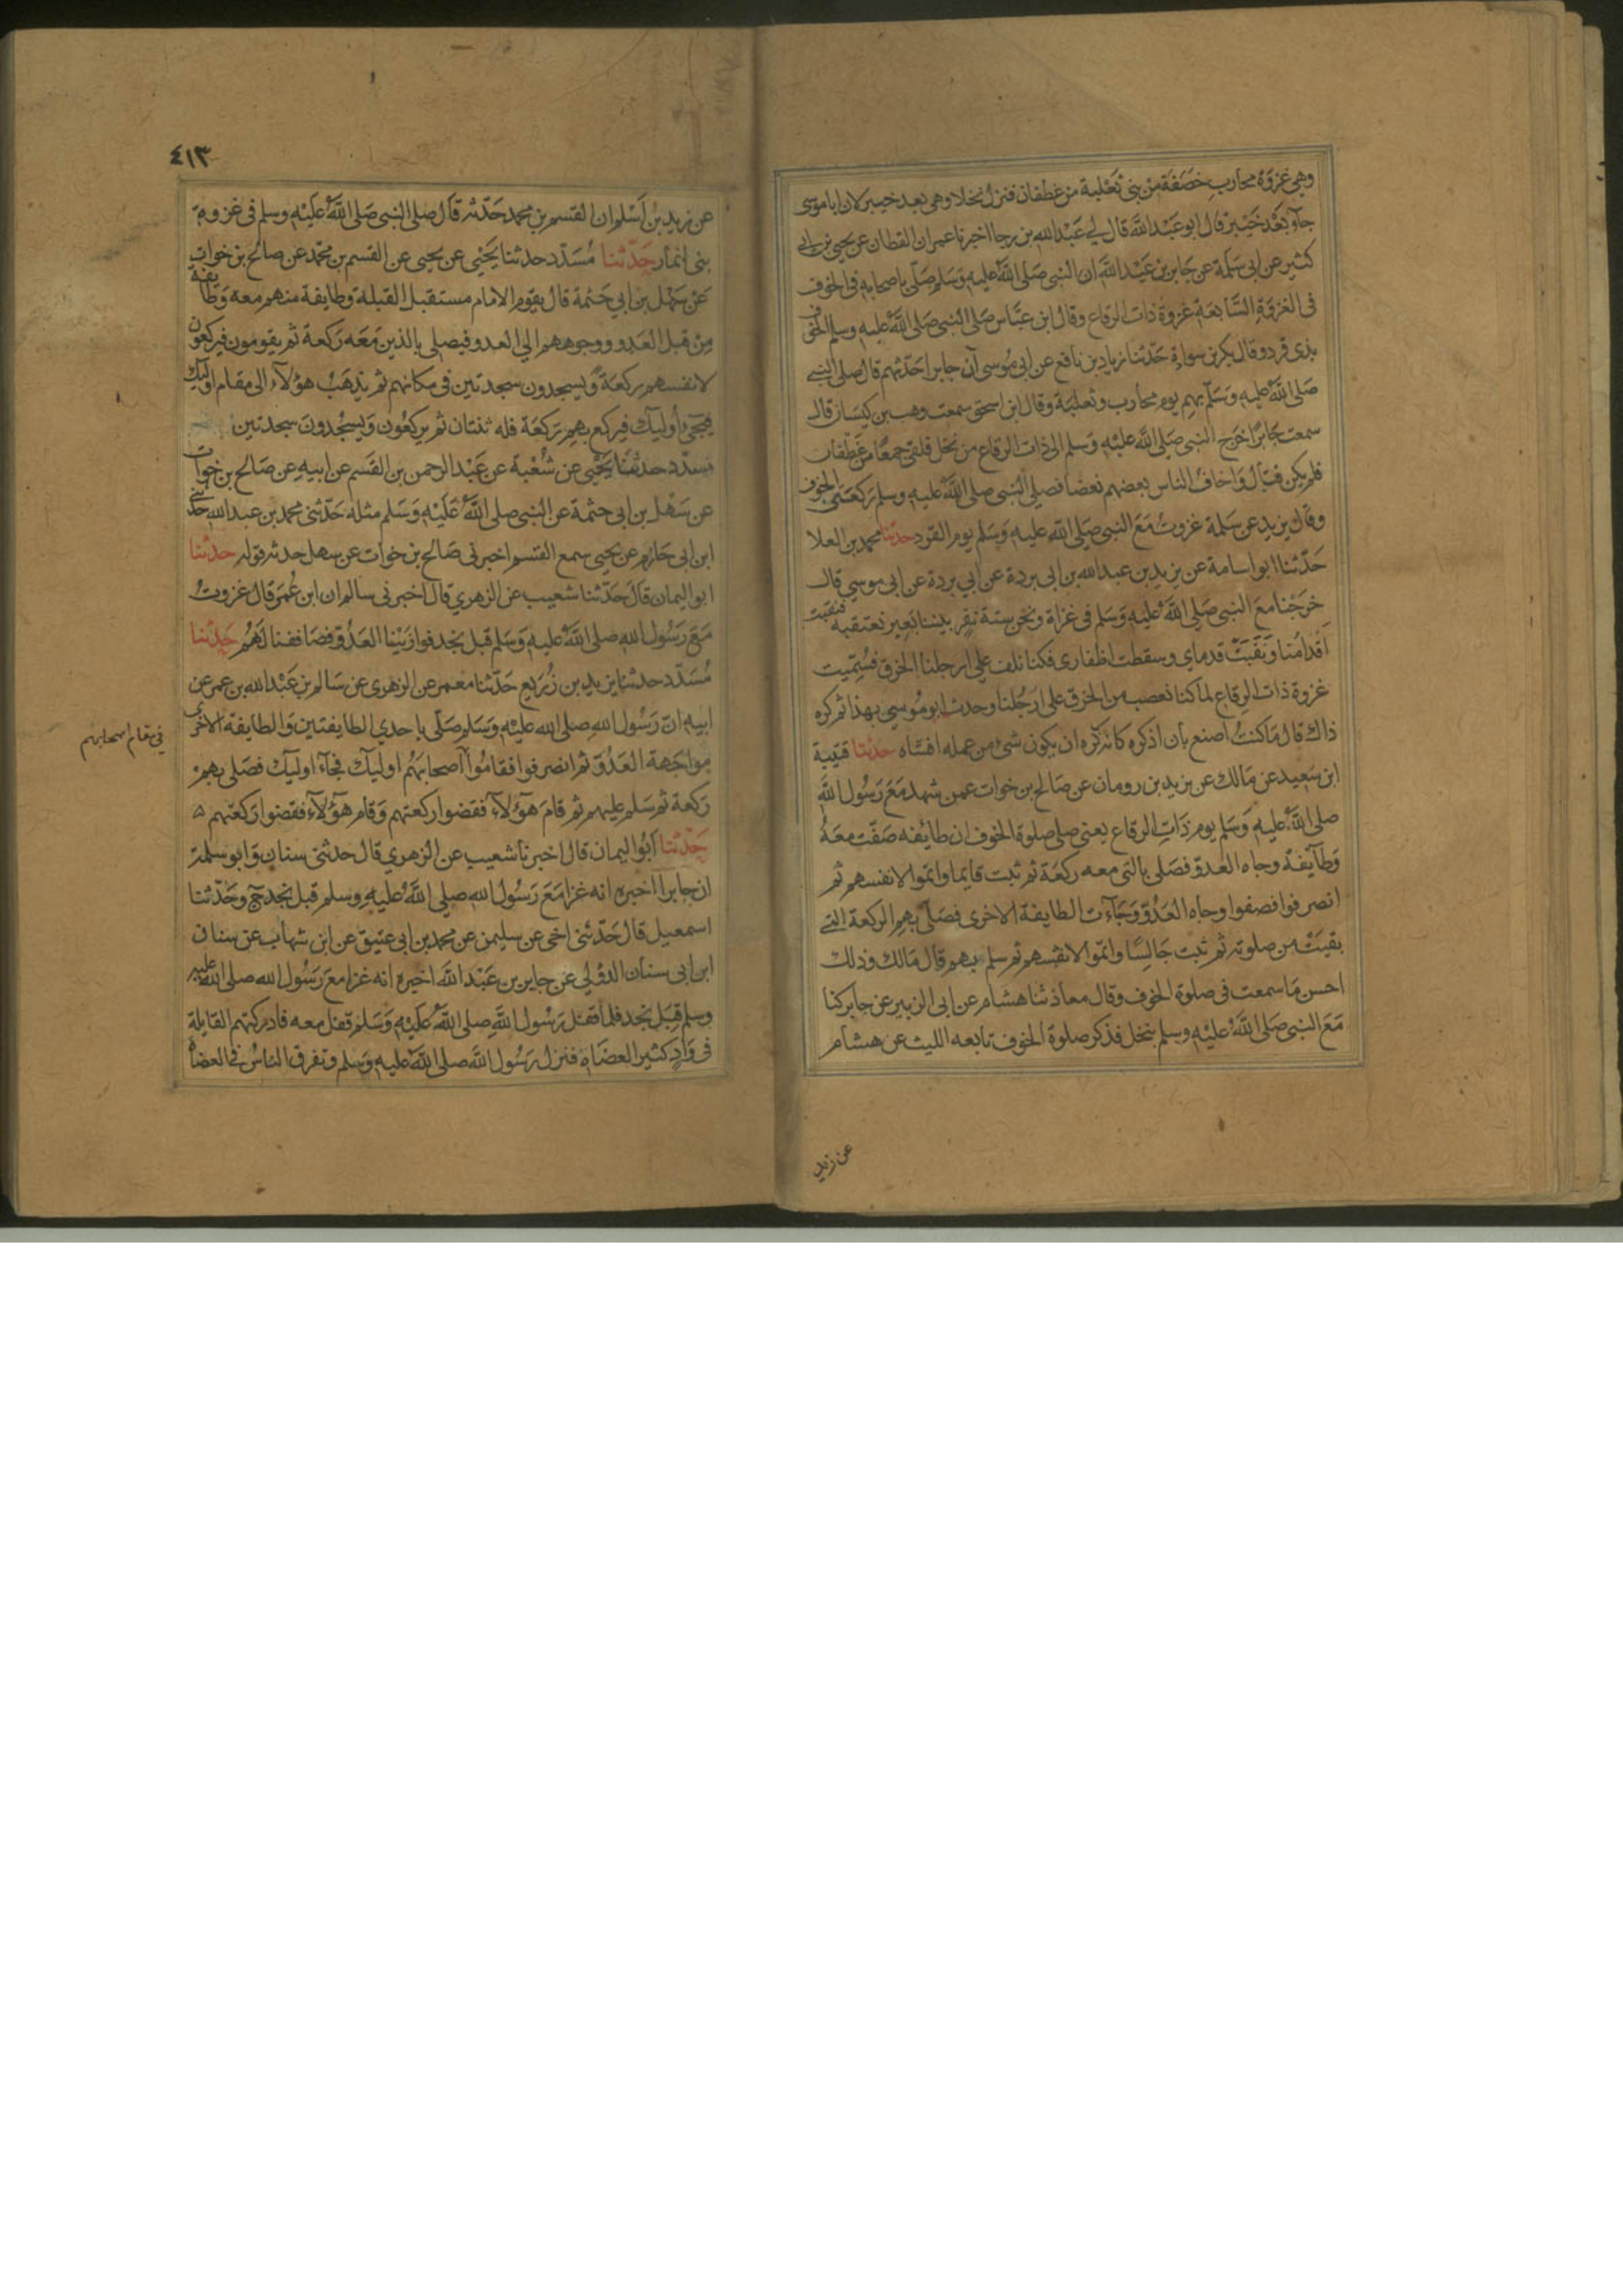 وهي غزوة محارب خصفة من بني ثعلبة من غطفان فنزل نخلا وهي بعد خيبر لان ابا موسى
جآء بعد خيبر قال ابو عبد الله قال لي عبد الله بن رجا اخبرنا عمران القطان عن يحيى بن ابي
كثير عن ابي سلمة عن جابر بن عبد الله ان النبي صلى الله عليه وسلم صلى باصحابه في الخوف
في الغزوة السابعة غزوة ذات الرقاع وقال ابن عباس صلى النبي صلى الله عليه وسلم الخوف
بذي قرد وقال بكر بن سوادة حدثنا زياد بن نافع عن ابي موسى ان جابرا حدثهم قال صلى النبي
صلى الله عليه وسلم بهم يوم محارب وثعلبة وقال ابن اسحق سمعت وهب بن كيسان قال
سمعت جابرا خرج النبي صلى الله عليه وسلم الى ذات الرقاع من نخل فلقي جمعا من غطفان
فلم يكن قتال واخاف الناس بعضهم بعضا فصلى النبي صلى الله عليه وسلم ركعتي الخوف
وقال يزيد عن سلمة غزوت مع النبي صلى الله عليه وسلم يوم القرد حدثنا محمد بن العلا
حدثنا ابو اسامة عن يزيد بن عبد الله بن ابي بردة عن ابي بردة عن ابي موسي قال
خرجنا مع النبي صلى الله عليه وسلم في غزاة ونحن ستة نفر بيننا بعير نعتقبه فنقبت
اقدامنا ونقبت قدماي وسقطت اظفاري فكنا نلف علي ارجلنا الخرق فسميت
غزوة ذات الرقاع لما كنا نعصب من الخرق على ارجلنا وحدث ابو موسي بهذا ثم كره
ذاك قال ما كنت اصنع بأن اذكره كانه كره ان يكون شئ من عمله افشاه حدثنا قتيبة
ابن سعيد عن مالك عن يزيد بن رومان عن صالح بن خوات عمن شهد مع رسول الله
صلى الله عليه وسلم يوم ذات الرقاع يعني صلى صلوة الخوف ان طائفه صفت معه
وطآيفة وجاه العدو فصلى بالتي معه ركعة ثم ثبت قايما واتموا لانفسهم ثم
انصرفوا فصفوا وجاه العدو وجاءت الطايفة الاخرى فصلى بهم الركعة التي
بقيت من صلوته ثم ثبت جالسا واتموا لانفسهم ثم سلم بهم قال مالك وذلك
احسن ما سمعت في صلوة الخوف وقال معاذ ثنا هشام عن ابي الزبير عن جابر كنا
مع النبي صلى الله عليه وسلم بنخل فذكر صلوة الخوف تابعه الليث عن هشام
عن زيد
٤١٣
عن زيد بن اسلم ان القسم بن محمد حدثه قال صلى النبي صلى الله عليه وسلم في غزوة
بني انمار حدثنا مسدد حدثنا يحيى عن يحيى عن القسم بن محمد عن صالح بن خوات
عن سهل بن ابي حثمة قال يقوم الامام مستقبل القبلة وطايفة منهم معه وطايفة
من قبل العدو ووجوههم الي العدو فيصلي بالذين معه ركعة ثم يقومون فيركعون
لانفسهم ركعة ويسجدون سجدتين في مكانهم ثم يذهب هؤلاء الى مقام اوليك
فيجيء اوليك فيركع بهم ركعة فله ثنتان ثم يركعون ويسجدون سجدتين
مسدد حدثنا يحيى عن شعبة عن عبد الرحمن بن القسم عن ابيه عن صالح بن خوات
عن سهل بن ابي حثمة عن النبي صلى الله عليه وسلم مثله حدثني محمد بن عبد الله حدثني
ابن ابي حازم عن يحيى سمع القسم اخبرني صالح بن خوات عن سهل حدثه قوله حدثنا
ابو اليمان قال حدثنا شعيب عن الزهري قال اخبرني سالم ان ابن عمر قال غزوت
مع رسول الله صلى الله عليه وسلم قبل نجد فوازينا العدو فصاففنا لهم حدثنا
مسدد حدثنا يزيد بن زريع حدثنا معمر عن الزهري عن سالم بن عبد الله بن عمر عن
ابيه ان رسول الله صلى الله عليه وسلم صلى باحدي الطايفتين والطايفة الاخرى
مواجهة العدو ثم انصرفوا فقاموا اصحابهم اوليك فجآء اوليك فصلى بهم
في مقام اصحابهم
ركعة ثم سلم عليهم ثم قام هؤلاء فقضوا ركعتهم وقام هؤلاء فقضوا ركعتهم ه
حدثنا ابو اليمان قال اخبرنا شعيب عن الزهري قال حدثني سنان وابو سلمة
ان جابرا اخبره انه غزا مع رسول الله صلى الله عليه وسلم قبل نجد ح وحدثنا
اسمعيل قال حدثني اخي عن سليمن عن محمد بن ابي عتيق عن ابن شهاب عن سنان
ابن ابي سنان الدؤلي عن جابر بن عبد الله اخبره انه غزا مع رسول الله صلى الله عليه
وسلم قبل نجد فلما قفل رسول الله صلى الله عليه وسلم قفل معه فادركتهم القايلة
في واد كثير العضاه فنزل رسول الله صلى الله عليه وسلم وتفرق الناس في العضاه